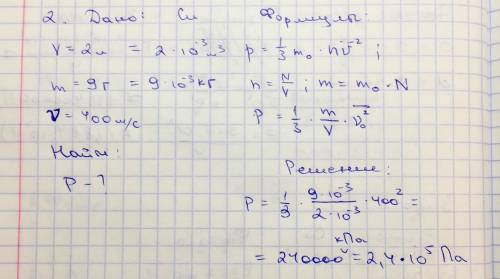 2. Дано: Си Формулы:
V = 2л = 2·10⁻³м³ p = 1/3 m₀·nv̄² ;
m = 9г = 9·10⁻³кг n = N/V ; m = m₀·N
v = 400м/с P = 1/3 · m/V · v̄₀²
Найти:
P - ?
Решение:
P = 1/3 · 9·10⁻³/2·10⁻³ · 400² =
кПа
= 240000 = 2,4·10⁵ Па